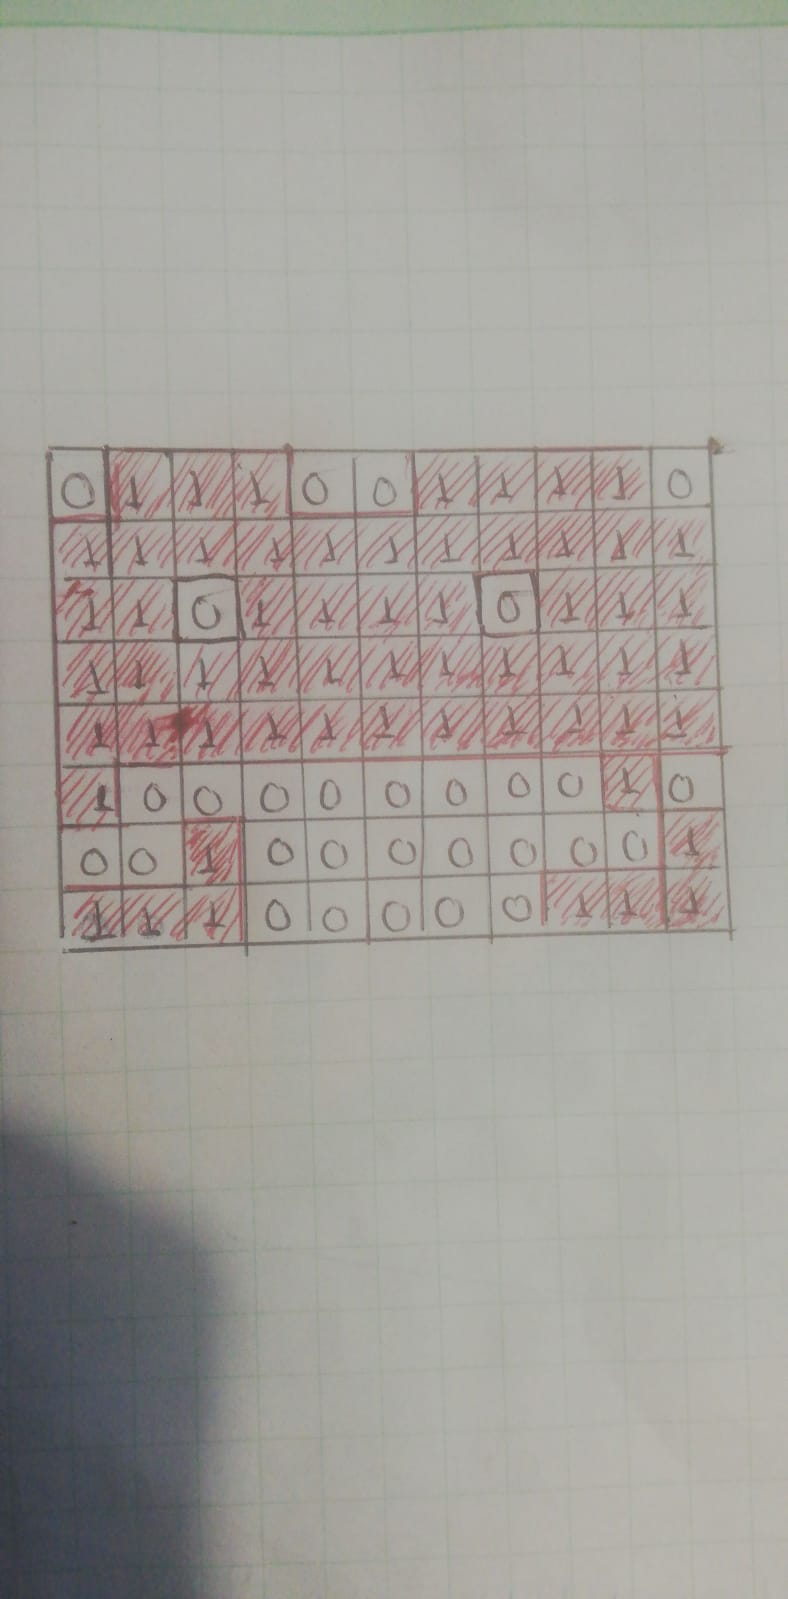 0 1 1 1 0 0 1 1 1 1 0
1 1 1 1 1 1 1 1 1 1 1
1 1 0 1 1 1 1 0 1 1 1
1 1 1 1 1 1 1 1 1 1 1
1 1 1 1 1 1 1 1 1 1 1
1 0 0 0 0 0 0 0 0 1 0
0 0 1 0 0 0 0 0 0 0 1
1 1 1 0 0 0 0 0 1 1 1